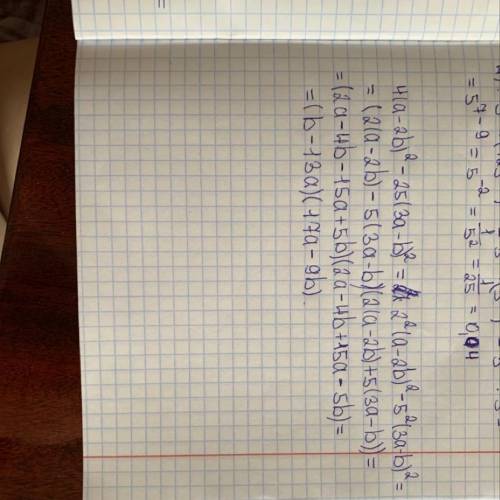 = 5⁷⁻⁹ = 5⁻² = 1/5² = 1/25 = 0,04
4(a-2b)² - 25(3a-b)² = 2²(a-2b)² - 5²(3a-b)² =
= (2(a-2b) - 5(3a-b))(2(a-2b) + 5(3a-b)) =
= (2a-4b-15a+5b)(2a-4b+15a-5b) =
= (b-13a)(17a-9b).